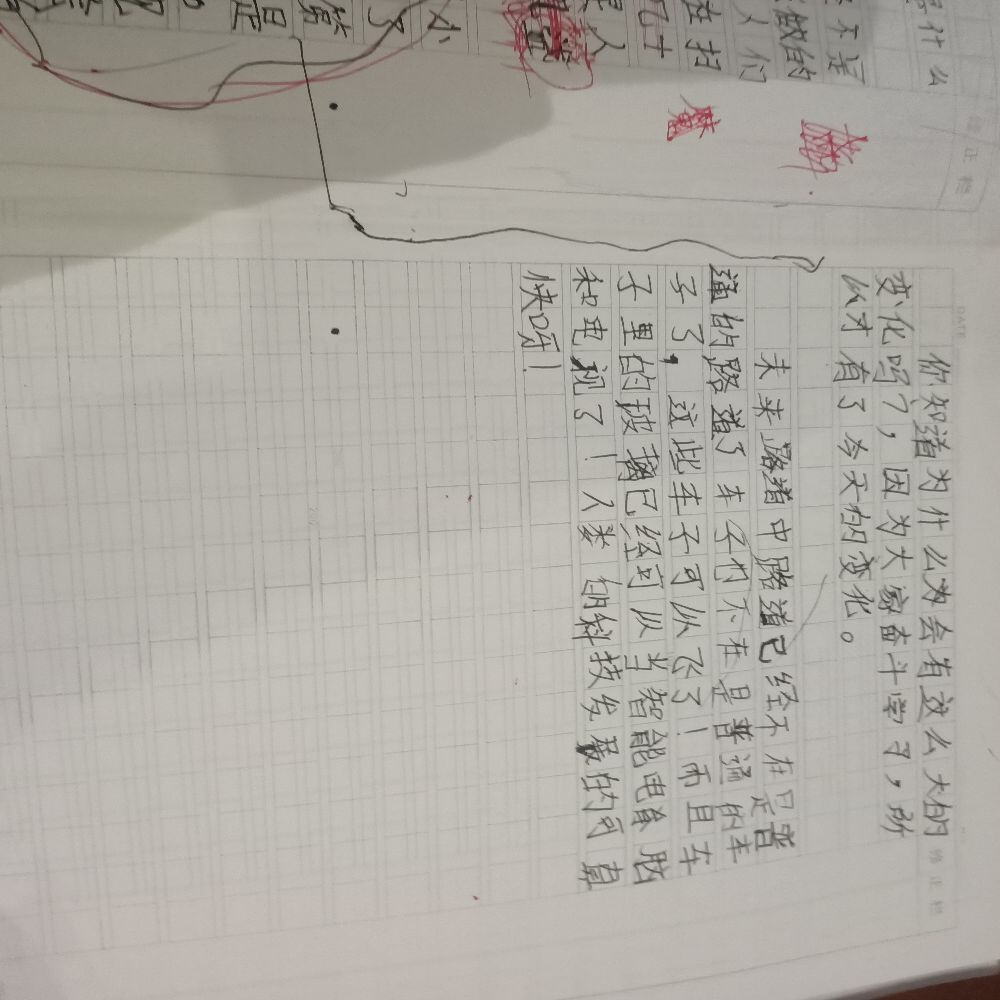 什么
不是
做的
人们
小
了
是
修正栏
DATE
你知道为什么为会有这么大的
变化吗?,因为大家奋斗学习,所
以才有了今天的变化。
未来路道中路道已经不在是普
通的路道了车子们不在是普通的车
子了,这些车子可以飞了!而且车
子里的玻璃已经可以当智能电备脑
和电视了!人类的科技发展的可真
快呀!
修正栏